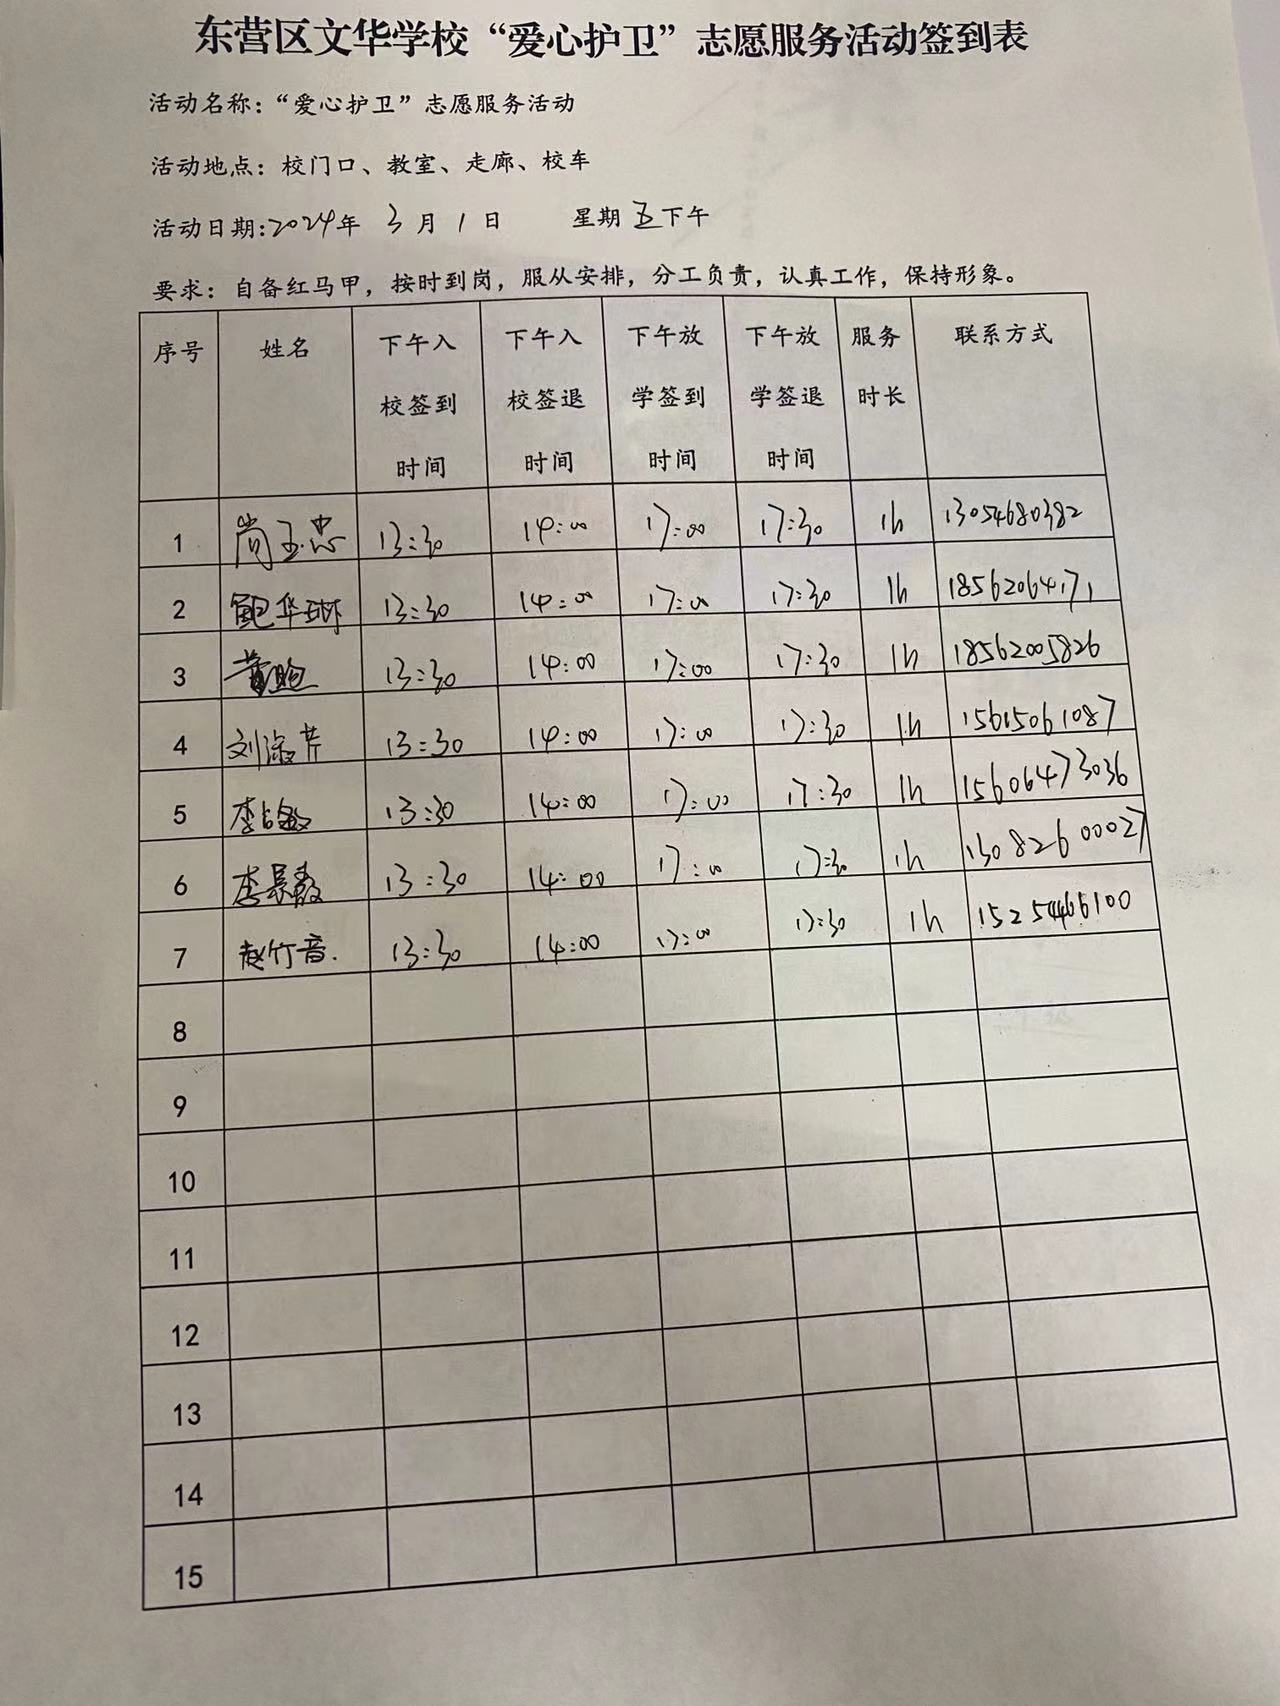 东营区文华学校“爱心护卫”志愿服务活动签到表
活动名称：“爱心护卫”志愿服务活动
活动地点：校门口、教室、走廊、校车
活动日期:2024年 3月1日 星期五下午
要求：自备红马甲，按时到岗，服从安排，分工负责，认真工作，保持形象。
序号 姓名 下午入校签到时间 下午入校签退时间 下午放学签到时间 下午放学签退时间 服务时长 联系方式
1 尚玉忠 13:30 14:00 17:00 17:30 1h 13054680382
2 鲍华琳 13:30 14:00 17:00 17:30 1h 18562064171
3 13:30 14:00 17:00 17:30 1h 18562005826
4 刘淑芹 13:30 14:00 17:00 17:30 1h 15615061087
5 李 13:30 14:00 17:00 17:30 1h 15606473036
6 李 13:30 14:00 17:00 17:30 1h 13082600027
7 赵竹音. 13:30 14:00 17:00 17:30 1h 15254466100
8
9
10
11
12
13
14
15